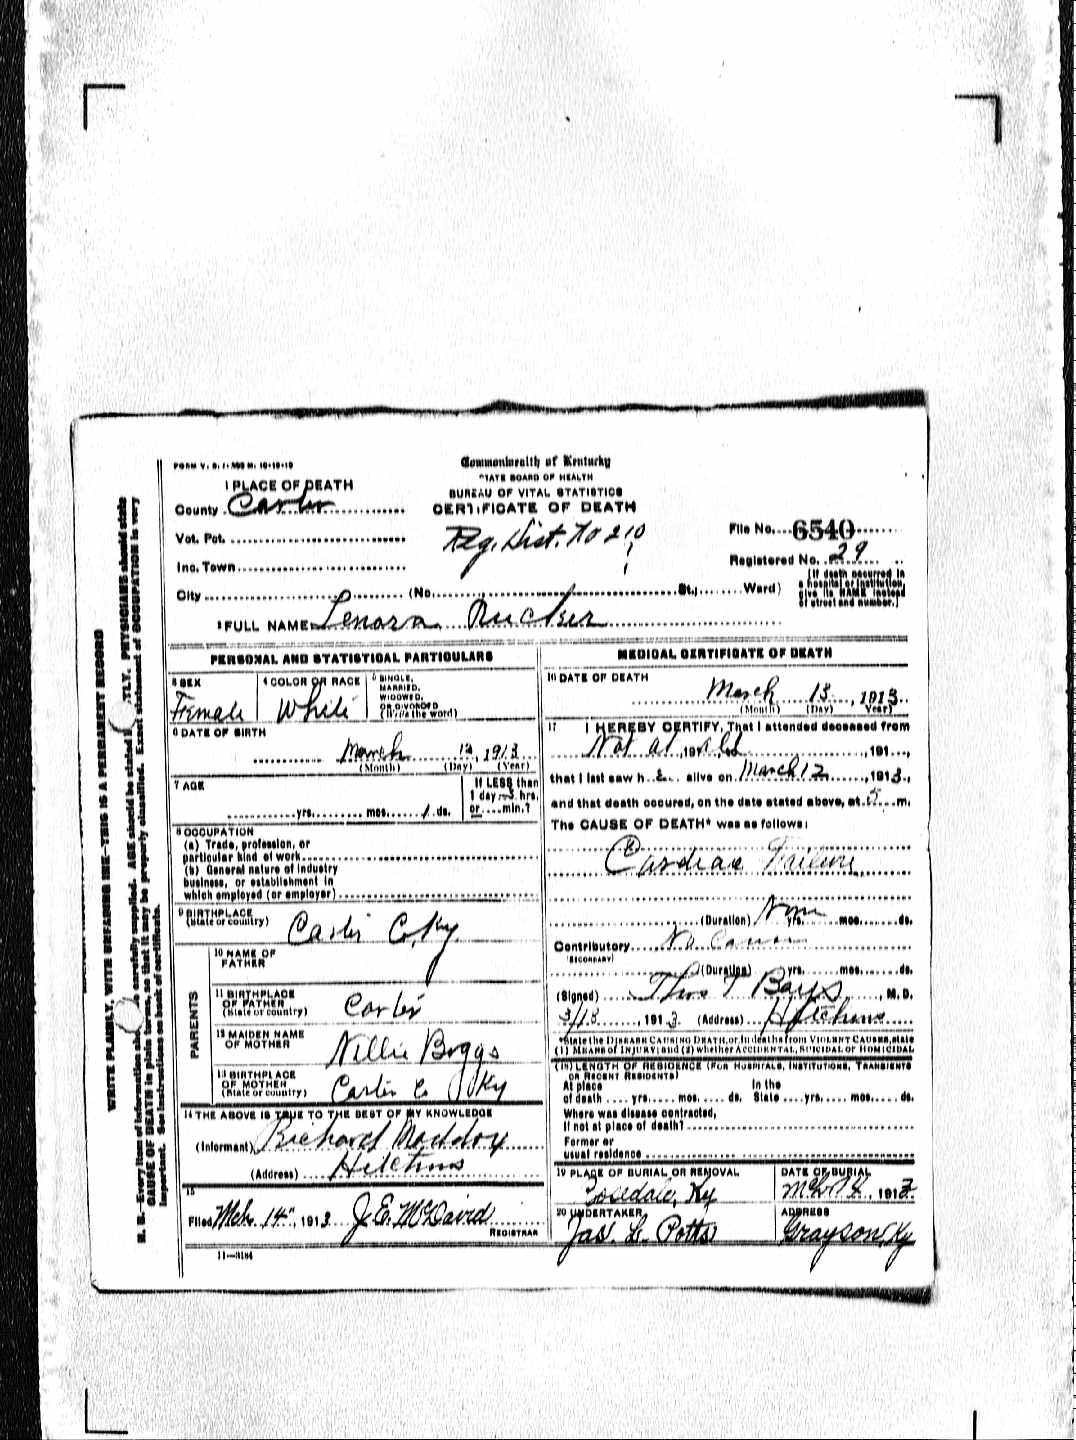 FORM V. S. 1-
Commonwealth of Kentucky
STATE BOARD OF HEALTH
BUREAU OF VITAL STATISTICS
CERTIFICATE OF DEATH
1 PLACE OF DEATH
County Carter
Vot. Pct.
Inc. Town
City (No. St.; Ward)
Reg. Dist. No 210
File No. 6540
Registered No. 29
(If death occurred in
a hospital or institution,
give its NAME instead
of street and number.)
2 FULL NAME Lenora Rucker
PERSONAL AND STATISTICAL PARTICULARS
3 SEX
Female
4 COLOR OR RACE
White
5 SINGLE,
MARRIED,
WIDOWED,
OR DIVORCED
(Write the word)
6 DATE OF BIRTH
March 12, 1913
(Month) (Day) (Year)
7 AGE
yrs. mos. 1 ds.
If LESS than
1 day hrs.
or min.?
8 OCCUPATION
(a) Trade, profession, or
particular kind of work
(b) General nature of industry
business, or establishment in
which employed (or employer)
9 BIRTHPLACE
(State or country)
Carter Co, Ky.
PARENTS
10 NAME OF
FATHER
11 BIRTHPLACE
OF FATHER
(State or country)
Carter
12 MAIDEN NAME
OF MOTHER
Nellie Boggs
13 BIRTHPLACE
OF MOTHER
(State or country)
Carter Co Ky
14 THE ABOVE IS TRUE TO THE BEST OF MY KNOWLEDGE
(Informant) Richard Maddox
(Address) Hitchins
15
Filed Mch. 14", 1913 J.E. McDavid
REGISTRAR
11—3184
MEDICAL CERTIFICATE OF DEATH
16 DATE OF DEATH
March 13, 1913
(Month) (Day) Year)
17 I HEREBY CERTIFY, That I attended deceased from
Not at, 191 all, 191
that I last saw h e alive on March 12, 1913,
and that death occured, on the date stated above, at 5 m.
The CAUSE OF DEATH* was as follows:
Cardiac Failure
(Duration) yrs. mos. ds.
Contributory
(SECONDARY)
(Duration) yrs. mos. ds.
(Signed) Thos T Bays, M. D.
3/13, 1913 (Address) Hitchins
*State the DISEASE CAUSING DEATH, or, in deaths from VIOLENT CAUSES, state
(1) MEANS of INJURY; and (2) whether ACCIDENTAL, SUICIDAL or HOMICIDAL
(18) LENGTH OF RESIDENCE (FOR HOSPITALS, INSTITUTIONS, TRANSIENTS
OR RECENT RESIDENTS)
At place In the
of death yrs. mos. ds. State yrs. mos. ds.
Where was disease contracted,
If not at place of death?
Former or
usual residence
19 PLACE OF BURIAL OR REMOVAL
Rosedale, Ky
DATE OF BURIAL
Mch 14, 1913
20 UNDERTAKER
Jas. L. Potts
ADDRESS
Grayson, Ky
WRITE PLAINLY, WITH UNFADING INK—THIS IS A PERMANENT RECORD
N. B.—Every item of information should be carefully supplied. AGE should be stated EXACTLY. PHYSICIANS should state
CAUSE OF DEATH in plain terms, so that it may be properly classified. Exact statement of OCCUPATION is very
important. See instructions on back of certificate.